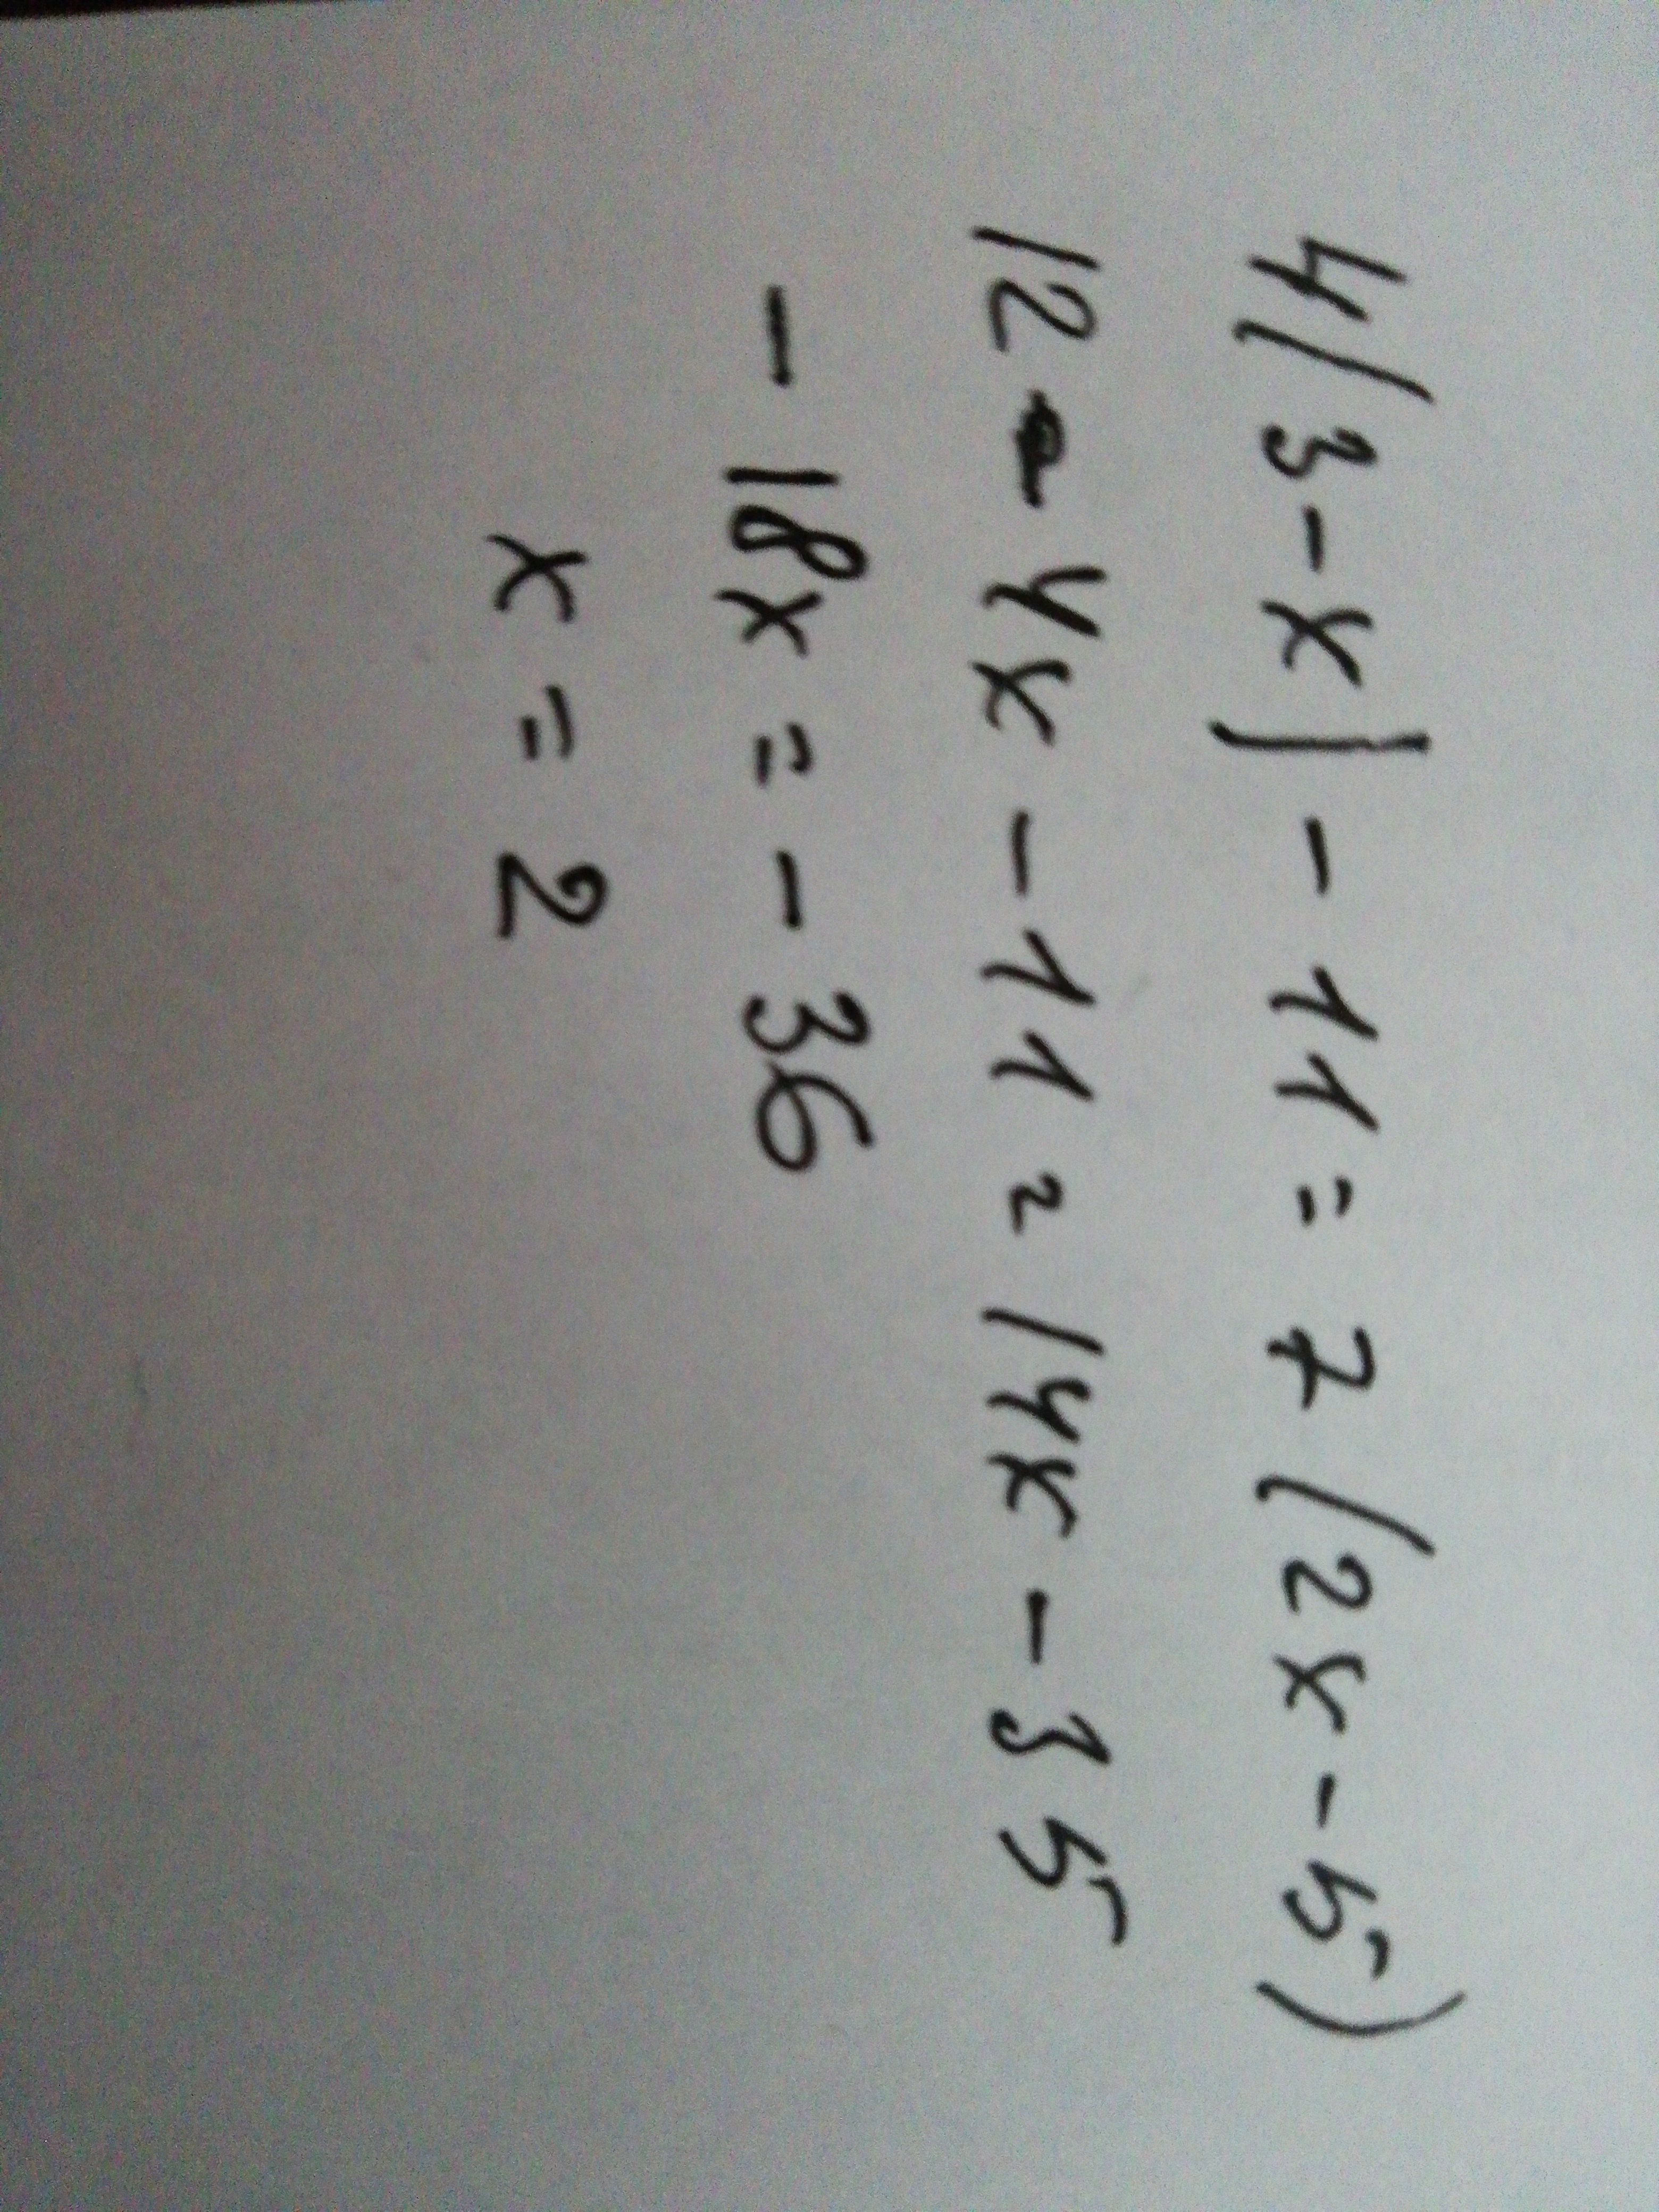 4(3-x)-11=7(2x-5)
12-4x-11=14x-35
-18x=-36
x=2